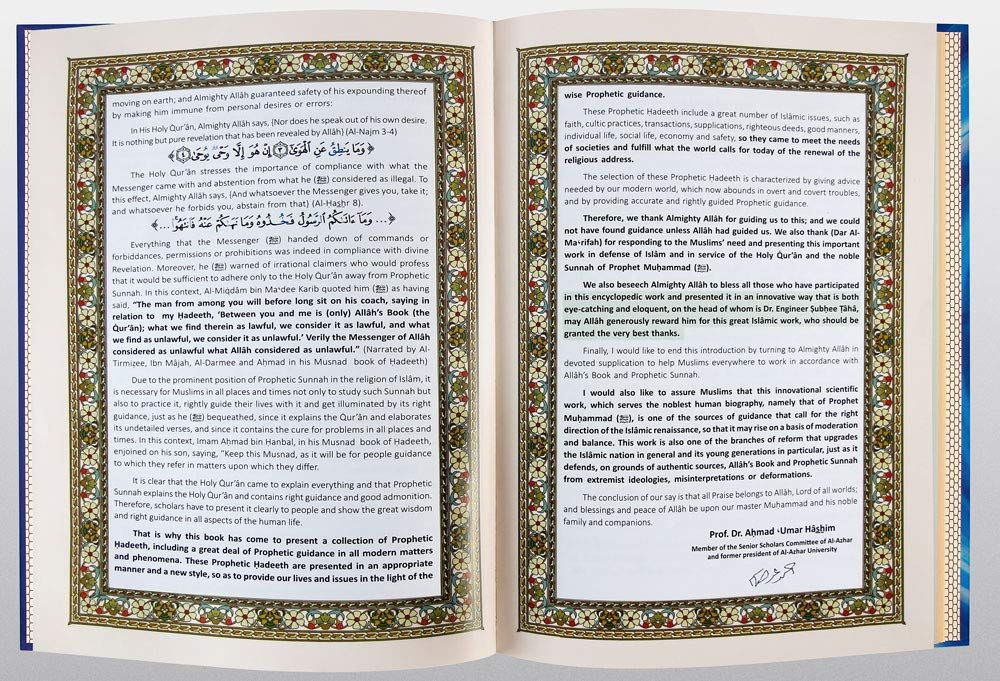 moving on earth; and Almighty Allâh guaranteed safety of his expounding thereof
by making him immune from personal desires or errors:
In His Holy Qur'ân, Almighty Allâh says, (Nor does he speak out of his own desire.
It is nothing but pure revelation that has been revealed by Allâh) (Al-Najm 3-4)
﴿وَمَا يَنطِقُ عَنِ ٱلْهَوَىٰٓ ۝٣ إِنْ هُوَ إِلَّا وَحْىٌ يُوحَىٰ ۝٤﴾
The Holy Qur'ân stresses the importance of compliance with what the
Messenger came with and abstention from what he (ﷺ) considered as illegal. To
this effect, Almighty Allâh says, (And whatsoever the Messenger gives you, take it;
and whatsoever he forbids you, abstain from that) (Al-Ḥashr 8).
﴿... وَمَآ ءَاتَىٰكُمُ ٱلرَّسُولُ فَخُذُوهُ وَمَا نَهَىٰكُمْ عَنْهُ فَٱنتَهُوا۟ ...﴾
Everything that the Messenger (ﷺ) handed down of commands or
forbiddances, permissions or prohibitions was indeed in compliance with divine
Revelation. Moreover, he (ﷺ) warned of irrational claimers who would profess
that it would be sufficient to adhere only to the Holy Qur'ân away from Prophetic
Sunnah. In this context, Al-Miqdâm bin Maʻdee Karib quoted him (ﷺ) as having
said, "The man from among you will before long sit on his coach, saying in
relation to my Ḥadeeth, 'Between you and me is (only) Allâh's Book (the
Qur'ân); what we find therein as lawful, we consider it as lawful, and what
we find as unlawful, we consider it as unlawful.' Verily the Messenger of Allâh
considered as unlawful what Allâh considered as unlawful." (Narrated by Al-
Tirmizee, Ibn Mâjah, Al-Darmee and Ahmad in his Musnad book of Ḥadeeth)
Due to the prominent position of Prophetic Sunnah in the religion of Islâm, it
is necessary for Muslims in all places and times not only to study such Sunnah but
also to practice it, rightly guide their lives with it and get illuminated by its right
guidance, just as he (ﷺ) bequeathed, since it explains the Qur'ân and elaborates
its undetailed verses, and since it contains the cure for problems in all places and
times. In this context, Imam Aḥmad bin Ḥanbal, in his Musnad book of Ḥadeeth,
enjoined on his son, saying, "Keep this Musnad, as it will be for people guidance
to which they refer in matters upon which they differ.
It is clear that the Holy Qur'ân came to explain everything and that Prophetic
Sunnah explains the Holy Qur'ân and contains right guidance and good admonition.
Therefore, scholars have to present it clearly to people and show the great wisdom
and right guidance in all aspects of the human life.
That is why this book has come to present a collection of Prophetic
Ḥadeeth, including a great deal of Prophetic guidance in all modern matters
and phenomena. These Prophetic Ḥadeeth are presented in an appropriate
manner and a new style, so as to provide our lives and issues in the light of the
wise Prophetic guidance.
These Prophetic Hadeeth include a great number of Islâmic issues, such as
faith, cultic practices, transactions, supplications, righteous deeds, good manners,
individual life, social life, economy and safety, so they came to meet the needs
of societies and fulfill what the world calls for today of the renewal of the
religious address.
The selection of these Prophetic Hadeeth is characterized by giving advice
needed by our modern world, which now abounds in overt and covert troubles,
and by providing accurate and rightly guided Prophetic Guidance.
Therefore, we thank Almighty Allâh for guiding us to this; and we could
not have found guidance unless Allâh had guided us. We also thank (Dar Al-
Maʻrifah) for responding to the Muslims' need and presenting this important
work in defense of Islâm and in service of the Holy Qur'ân and the noble
Sunnah of Prophet Muḥammad (ﷺ).
We also beseech Almighty Allâh to bless all those who have participated
in this encyclopedic work and presented it in an innovative way that is both
eye-catching and eloquent, on the head of whom is Dr. Engineer Ṣubḥee Ṭâhâ,
may Allâh generously reward him for this great Islâmic work, who should be
granted the very best thanks.
Finally, I would like to end this introduction by turning to Almighty Allâh in
devoted supplication to help Muslims everywhere to work in accordance with
Allâh's Book and Prophetic Sunnah.
I would also like to assure Muslims that this innovational scientific
work, which serves the noblest human biography, namely that of Prophet
Muḥammad (ﷺ), is one of the sources of guidance that call for the right
direction of the Islâmic renaissance, so that it may rise on a basis of moderation
and balance. This work is also one of the branches of reform that upgrades
the Islâmic nation in general and its young generations in particular, just as it
defends, on grounds of authentic sources, Allâh's Book and Prophetic Sunnah
from extremist ideologies, misinterpretations or deformations.
The conclusion of our say is that all Praise belongs to Allâh, Lord of all worlds;
and blessings and peace of Allâh be upon our master Muhammad and his noble
family and companions.
Prof. Dr. Aḥmad ʻUmar Hâshim
Member of the Senior Scholars Committee of Al-Azhar
and former president of Al-Azhar University